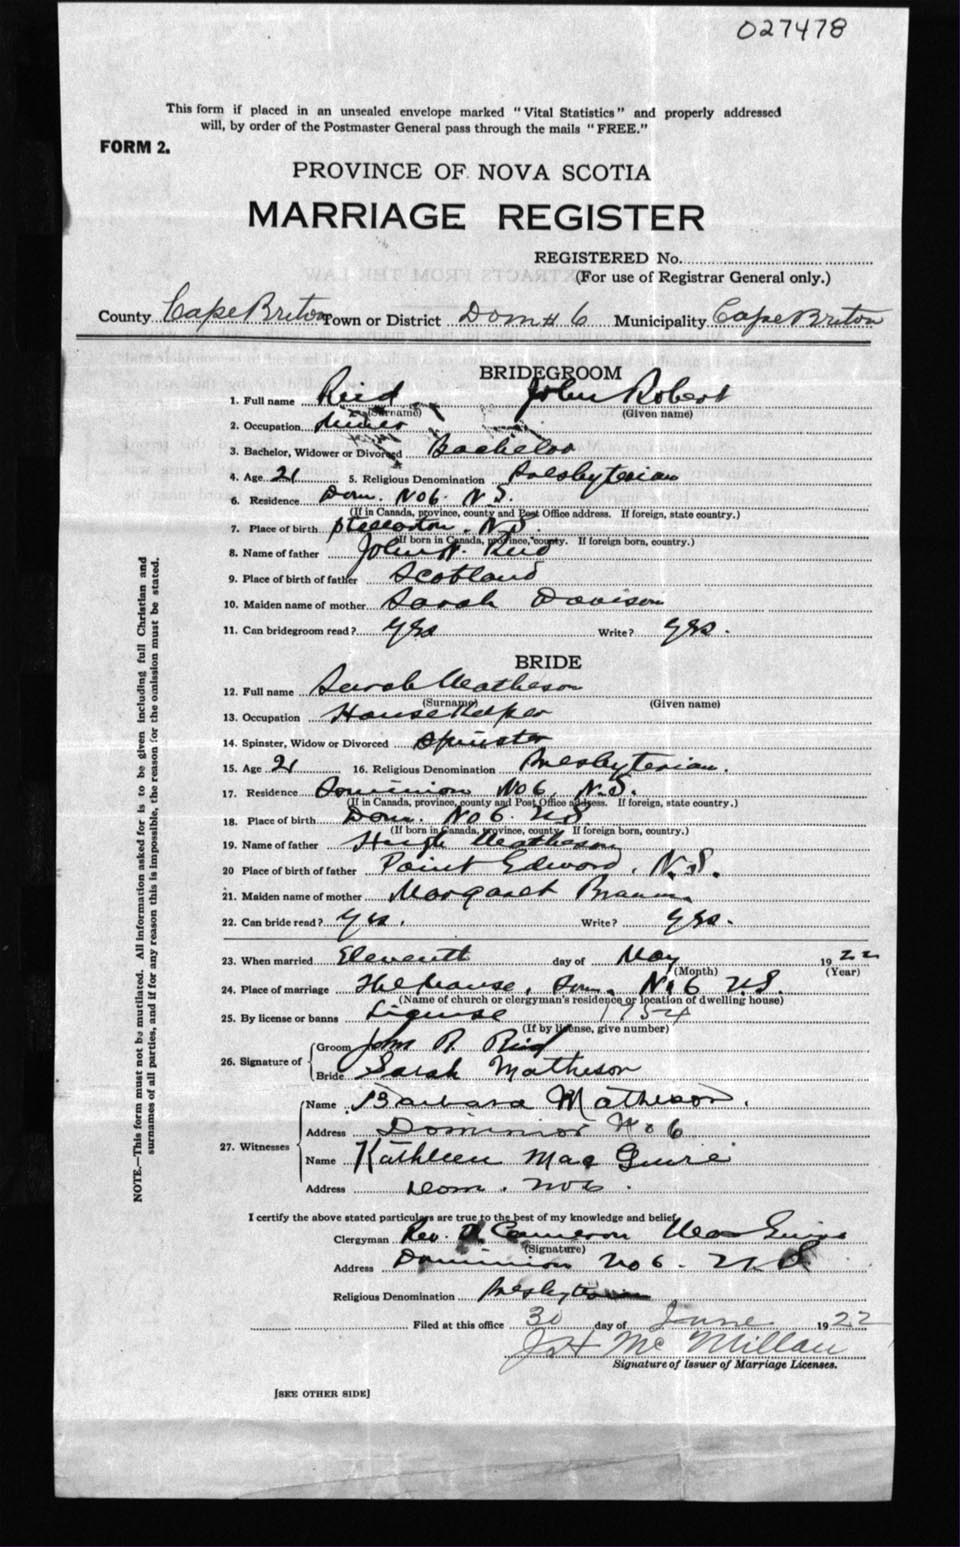 027478
This form if placed in an unsealed envelope marked "Vital Statistics" and properly addressed
will, by order of the Postmaster General pass through the mails "FREE."
FORM 2.
PROVINCE OF NOVA SCOTIA
MARRIAGE REGISTER
REGISTERED No.
(For use of Registrar General only.)
County Cape Briton Town or District Dom # 6 Municipality Cape Briton
BRIDEGROOM
1. Full name Reid John Robert
(Surname) (Given name)
2. Occupation Miner
3. Bachelor, Widower or Divorced Bachelor
4. Age 21 5. Religious Denomination Presbyterian
6. Residence Dom. No 6. N.S.
(If in Canada, province, county and Post Office address. If foreign, state country.)
7. Place of birth Stellarton. N.S.
(If born in Canada, province, county. If foreign born, country.)
8. Name of father John Reid
9. Place of birth of father Scotland
10. Maiden name of mother Sarah Davison
11. Can bridegroom read? Yes Write? Yes.
BRIDE
12. Full name Sarah Matheson
(Surname) (Given name)
13. Occupation House Keeper
14. Spinster, Widow or Divorced Spinster
15. Age 21 16. Religious Denomination Presbyterian.
17. Residence Dominion No 6, N.S.
(If in Canada, province, county and Post Office address. If foreign, state country.)
18. Place of birth Dom. No 6. N.S.
(If born in Canada, province, county If foreign born, country.)
19. Name of father Hugh Matheson
20 Place of birth of father Point Edward, N.S.
21. Maiden name of mother Margaret
22. Can bride read? Yes. Write? Yes.
23. When married Eleventh day of May 1922
(Month) (Year)
24. Place of marriage The Manse, Dom. No 6 N.S.
(Name of church or clergyman's residence or location of dwelling house)
25. By license or banns License 1754
(If by license, give number)
26. Signature of Groom John R. Reid
Bride Sarah Matheson
27. Witnesses
Name Barbara Matheson.
Address Dominion No 6
Name Kathleen Mac Guire
Address Dom. No 6.
I certify the above stated particulars are true to the best of my knowledge and belief,
Clergyman Rev. A Cameron
(Signature)
Address Dominion No 6. N.S
Religious Denomination Presbyterian
Filed at this office 30 day of June 1922
McMillan
Signature of Issuer of Marriage Licenses.
[SEE OTHER SIDE]
NOTE.—This form must not be mutilated. All information asked for is to be given including full Christian and
surnames of all parties, and if for any reason this is impossible, the reason for the omission must be stated.